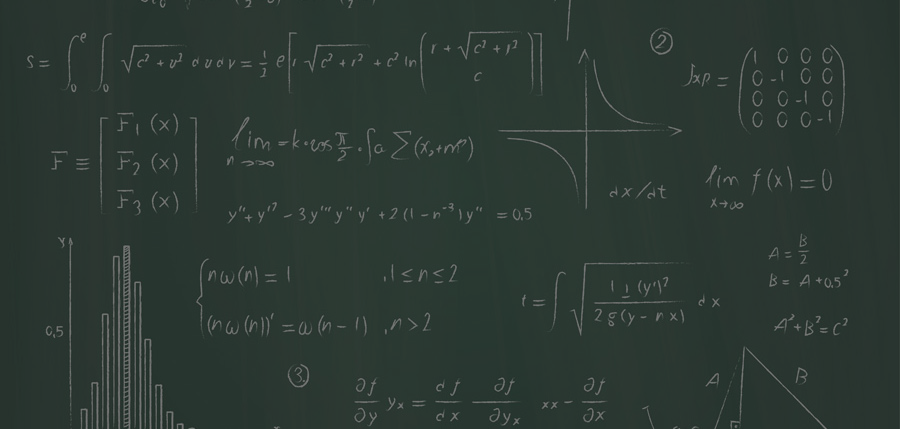 ②
S = ∫₀^e ∫₀ √(c² + v²) dudv = 1/2 e [ r √(c² + r²) + c² ln ( (r + √(c² + r²)) / c ) ]
Jxp = (1 0 0 0
0 -1 0 0
0 0 -1 0
0 0 0 -1)
F ≡ [ F₁ (x)
F₂ (x)
F₃ (x) ]
lim n→∞ = k·cos π/2 ·
dx/dt
lim x→∞ f(x) = 0
y'' + y'² - 3y'''y''y' + 2(1 - n⁻³)y'' = 0.5
y
0,5
{ nω(n) = 1 ,1 ≤ n ≤ 2
(nω(n))' = ω(n-1) ,n > 2
t = ∫ √( (1 ⊥ (y')²) / (2g(y - nx)) ) dx
A = B/2
B = A + 0.5²
A² + B² = C²
③.
∂f/∂y yₓ = df/dx - ∂f/∂yₓ xx - ∂f/∂x
A B